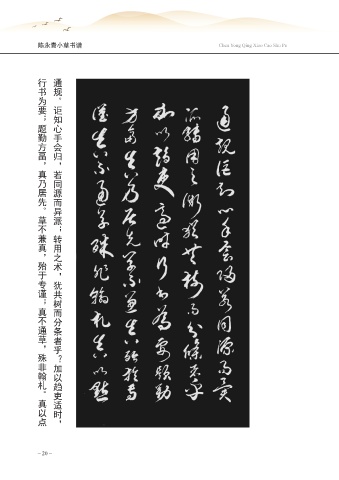 陈永青小草书谱
Chen Yong Qing Xiao Cao Shu Pu
通规，讵知心手会归，若同源而异派；转用之术，犹共树而分条者乎？加以趋吏适时，
行书为要；题勒方畐，真乃居先。草不兼真，殆于专谨；真不通草，殊非翰札。真以点
通规讵知心手会归若同源而异
派转用之术犹共树而分条者乎
加以趋吏适时行书为要题勒
方畐真乃居先草不兼真殆于专
谨真不通草殊非翰札真以点
- 26 -